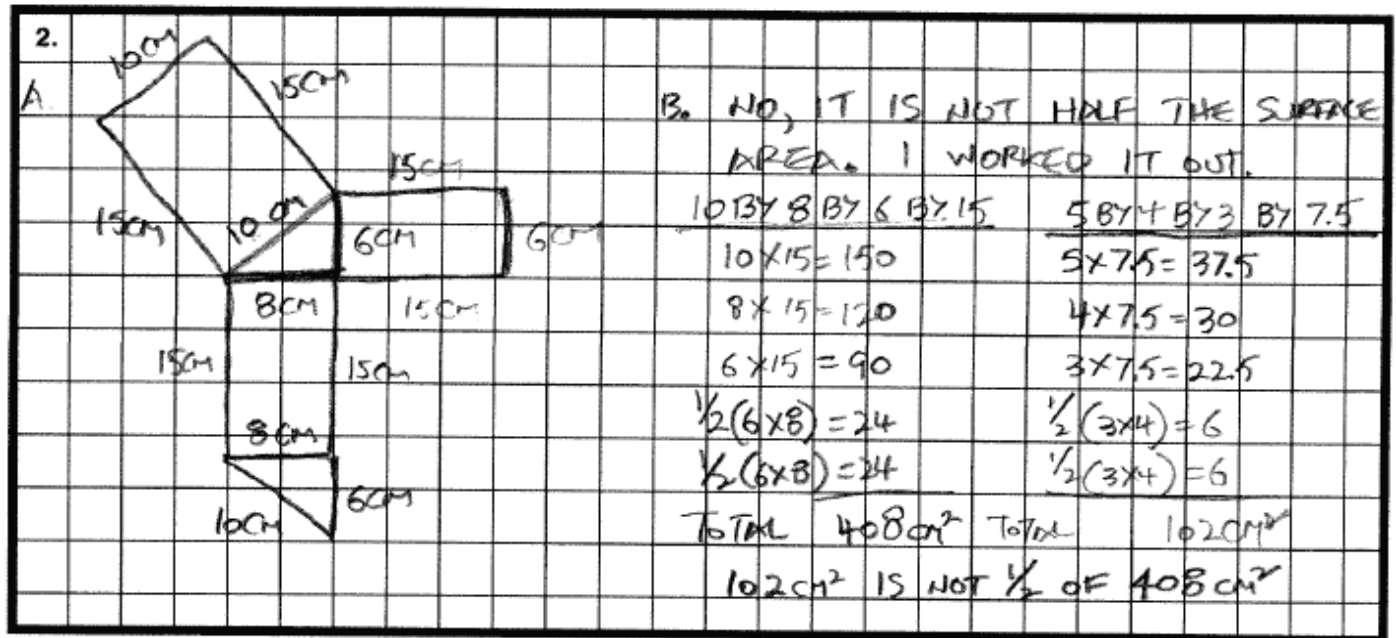 2.
A.
10 CM
15 CM
15 CM
10 CM
15 CM
6 CM
6 CM
8 CM
15 CM
15 CM
15 CM
8 CM
6 CM
10 CM
B. NO, IT IS NOT HALF THE SURFACE
AREA. I WORKED IT OUT.
10 BY 8 BY 6 BY 15
10 X 15 = 150
8 X 15 = 120
6 X 15 = 90
1/2 (6 X 8) = 24
1/2 (6 X 8) = 24
TOTAL 408 CM²
5 BY 4 BY 3 BY 7.5
5 X 7.5 = 37.5
4 X 7.5 = 30
3 X 7.5 = 22.5
1/2 (3X4) = 6
1/2 (3X4) = 6
TOTAL 102 CM²
102 CM² IS NOT 1/2 OF 408 CM²